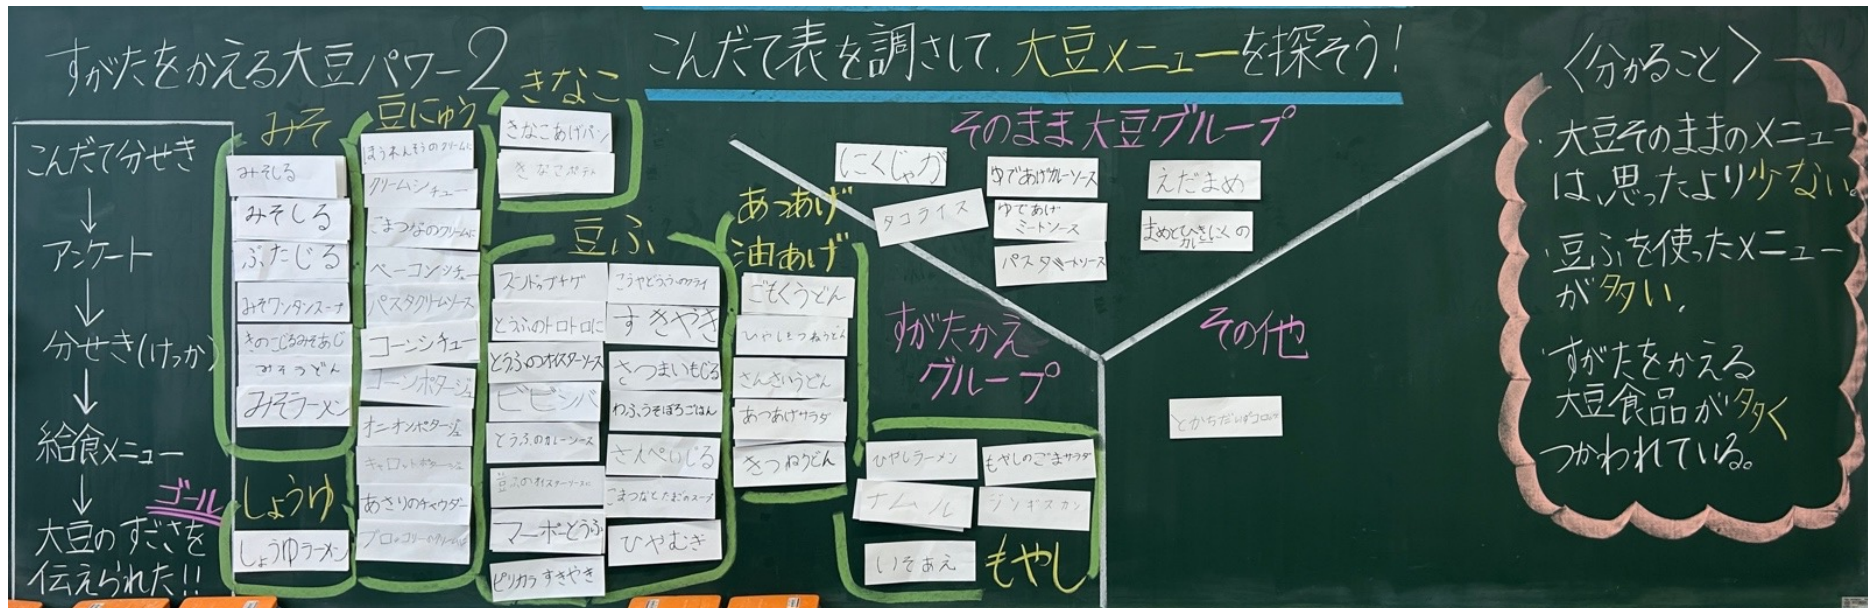 すがたをかえる大豆パワー2
こんだて表を調さして、大豆メニューを探そう!
こんだて分せき
↓
アンケート
↓
分せき(けっか)
↓
給食メニュー
↓
ゴール
大豆のすごさを
伝えられた!!
みそ
みそしる
みそしる
ぶたじる
みそワンタンスープ
きのこじるみそあじ
みそうどん
みそラーメン
しょうゆ
しょうゆラーメン
豆にゅう
ほうれんそうのクリームに
クリームシチュー
こまつなのクリームに
ベーコンシチュー
パスタクリームソース
コーンシチュー
コーンポタージュ
オニオンポタージュ
キャロットポタージュ
あさりのチャウダー
ブロッコリーのクリームに
きなこ
きなこあげパン
きなこポテト
豆ふ
スンドゥブチゲ
とうふのトロトロに
とうふのオイスターソース
ビビンバ
とうふのカレーソース
豆ふのオイスターソースに
マーボーとうふ
ピリカラすきやき
こうやどうふのフライ
すきやき
さつまいもじる
わふうそぼろごはん
さんぺいじる
こまつなとたまごのスープ
ひやむぎ
あつあげ
油あげ
ごもくうどん
ひやしきつねうどん
さんさいうどん
あつあげサラダ
きつねうどん
そのまま大豆グループ
にくじゃが
タコライス
ゆであげ
ミートソース
えだまめ
まめとひきにくの
カレー
すがたかえ
グループ
ひやしラーメン
もやしのごまサラダ
ナムル
ジンギスカン
いそあえ
もやし
その他
〈分かること〉
・大豆そのままのメニュー
は、思ったより少ない。
・豆ふを使ったメニュー
が多い。
・すがたをかえる
大豆食品が多く
つかわれている。